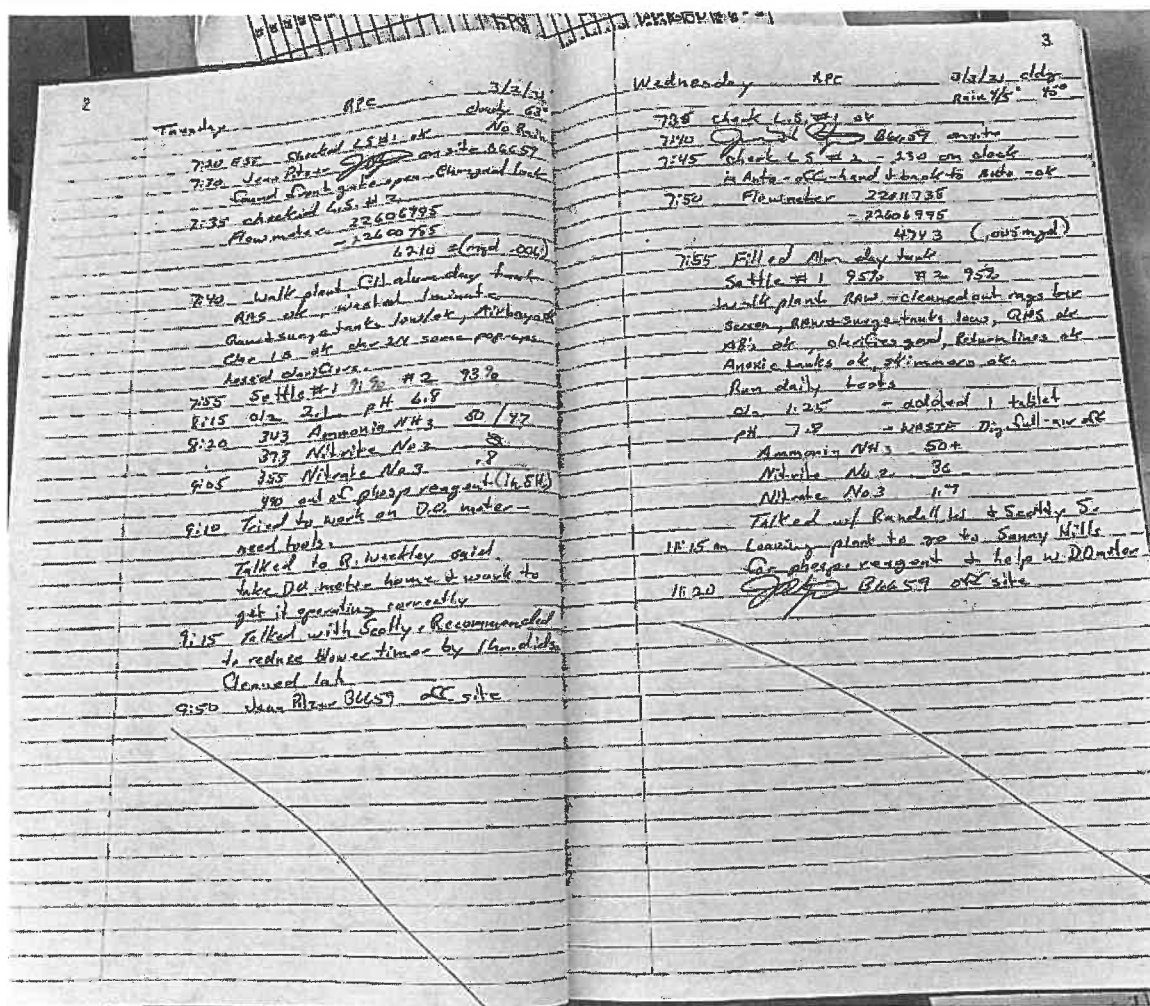 2
Tuesday RPC 3/2/21
cloudy 63°
7:20 EST Checked LS #1 ok No Rain
7:30 Jean Pitzer on site B6659
found front gate open
7:35 checked L.S. # 2
Flowmeter 22606995
- 22600785
6210 = (mgd .006)
7:40 Walk plant fill alum day tank
RAS ok, wasted 1 minute
Raw & surge tanks low/ok,
some pop-ups
hosed clarifiers.
7:55 Settle # 1 91% # 2 93%
8:15 cl2 2.1 pH 6.8
8:20 343 Ammonia NH3 50 / 47
373 Nitrite No3
9:05 355 Nitrate No3 .8
490 out of phosp reagent
9:10 Tried to work on D.O. meter -
need tools.
Talked to R. Weekley said
take DO meter home & work to
get it operating correctly
9:15 Talked with Scotty. Recommended
to reduce blower timer by
Cleaned lab
9:50 Jean Pitzer B6659 off site
3
Wednesday RPC 3/3/21 cldy
Rain 4/5" 45°
7:35 check L.S. #1 ok
7:40 B6659 onsite
7:45 check L.S # 2 - 330 on clock
in Auto - off - hand & back to auto - ok
7:50 Flowmeter 22611738
- 22606995
4743 (.005 mgd)
7:55 Filled Alum day tank
Settle # 1 95% # 2 95%
Walk plant RAW - cleaned out rags bar
screen, RAW & surge tanks low, RAS ok
AB's ok, clarifiers good, Return lines ok
Anoxic tanks ok, skimmers ok.
Run daily tests
cl2 1.25 - added 1 tablet
pH 7.8 - WASTE Dig. full - air off
Ammonia NH3 50+
Nitrite No.2 36
Nitrate No.3 1.7
Talked w/ Randall W & Scotty S.
11:15 am Leaving plant to go to Sunny Hills
for phosp. reagent & help w. DO meter
11:20 B6659 off site